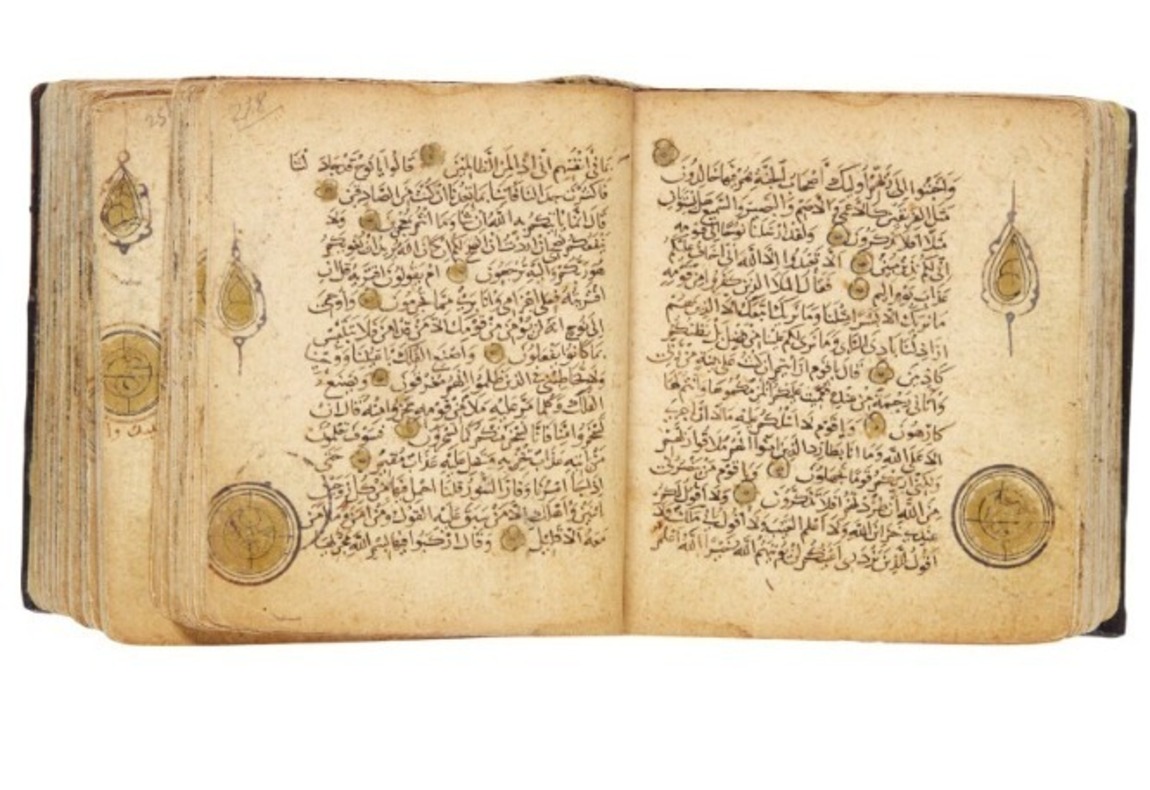 وأخبتوا إلى ربهم أولئك أصحاب الجنة هم فيها خالدون
مثل الفريقين كالأعمى والأصم والبصير والسميع هل يستويان
مثلا أفلا تذكرون ولقد أرسلنا نوحا إلى قومه
إني لكم نذير مبين ألا تعبدوا إلا الله إني أخاف عليكم
عذاب يوم أليم فقال الملأ الذين كفروا من قومه
ما نريك إلا بشرا مثلنا وما نريك اتبعك إلا الذين هم
أراذلنا بادي الرأي وما نرى لكم علينا من فضل بل نظنكم
كاذبين قال يا قوم أرأيتم إن كنت على بينة من ربي
وآتاني رحمة من عنده فعميت عليكم أنلزمكموها وأنتم لها
كارهون ويا قوم لا أسألكم عليه مالا إن أجري
إلا على الله وما أنا بطارد الذين آمنوا إنهم ملاقوا ربهم
ولكني أراكم قوما تجهلون ويا قوم من ينصرني
من الله إن طردتهم أفلا تذكرون ولا أقول لكم
عندي خزائن الله ولا أعلم الغيب ولا أقول إني ملك ولا
أقول للذين تزدري أعينكم لن يؤتيهم الله خيرا الله أعلم
بما في أنفسهم إني إذا لمن الظالمين قالوا يا نوح قد جادلتنا
فأكثرت جدالنا فأتنا بما تعدنا إن كنت من الصادقين
قال إنما يأتيكم به الله إن شاء وما أنتم بمعجزين ولا
ينفعكم نصحي إن أردت أن أنصح لكم إن كان الله يريد أن يغويكم
هو ربكم وإليه ترجعون أم يقولون افتريه قل إن
افتريته فعلي إجرامي وأنا بريء مما تجرمون وأوحي
إلى نوح أنه لن يؤمن من قومك إلا من قد آمن فلا تبتئس
بما كانوا يفعلون واصنع الفلك بأعيننا ووحينا
ولا تخاطبني في الذين ظلموا إنهم مغرقون ويصنع
الفلك وكلما مر عليه ملأ من قومه سخروا منه قال إن
تسخروا منا فإنا نسخر منكم كما تسخرون فسوف تعلمون
من يأتيه عذاب يخزيه ويحل عليه عذاب مقيم حتى
إذا جاء أمرنا وفار التنور قلنا احمل فيها من كل زوجين
اثنين وأهلك إلا من سبق عليه القول ومن آمن وما آمن
معه إلا قليل وقال اركبوا فيها بسم الله مجريها